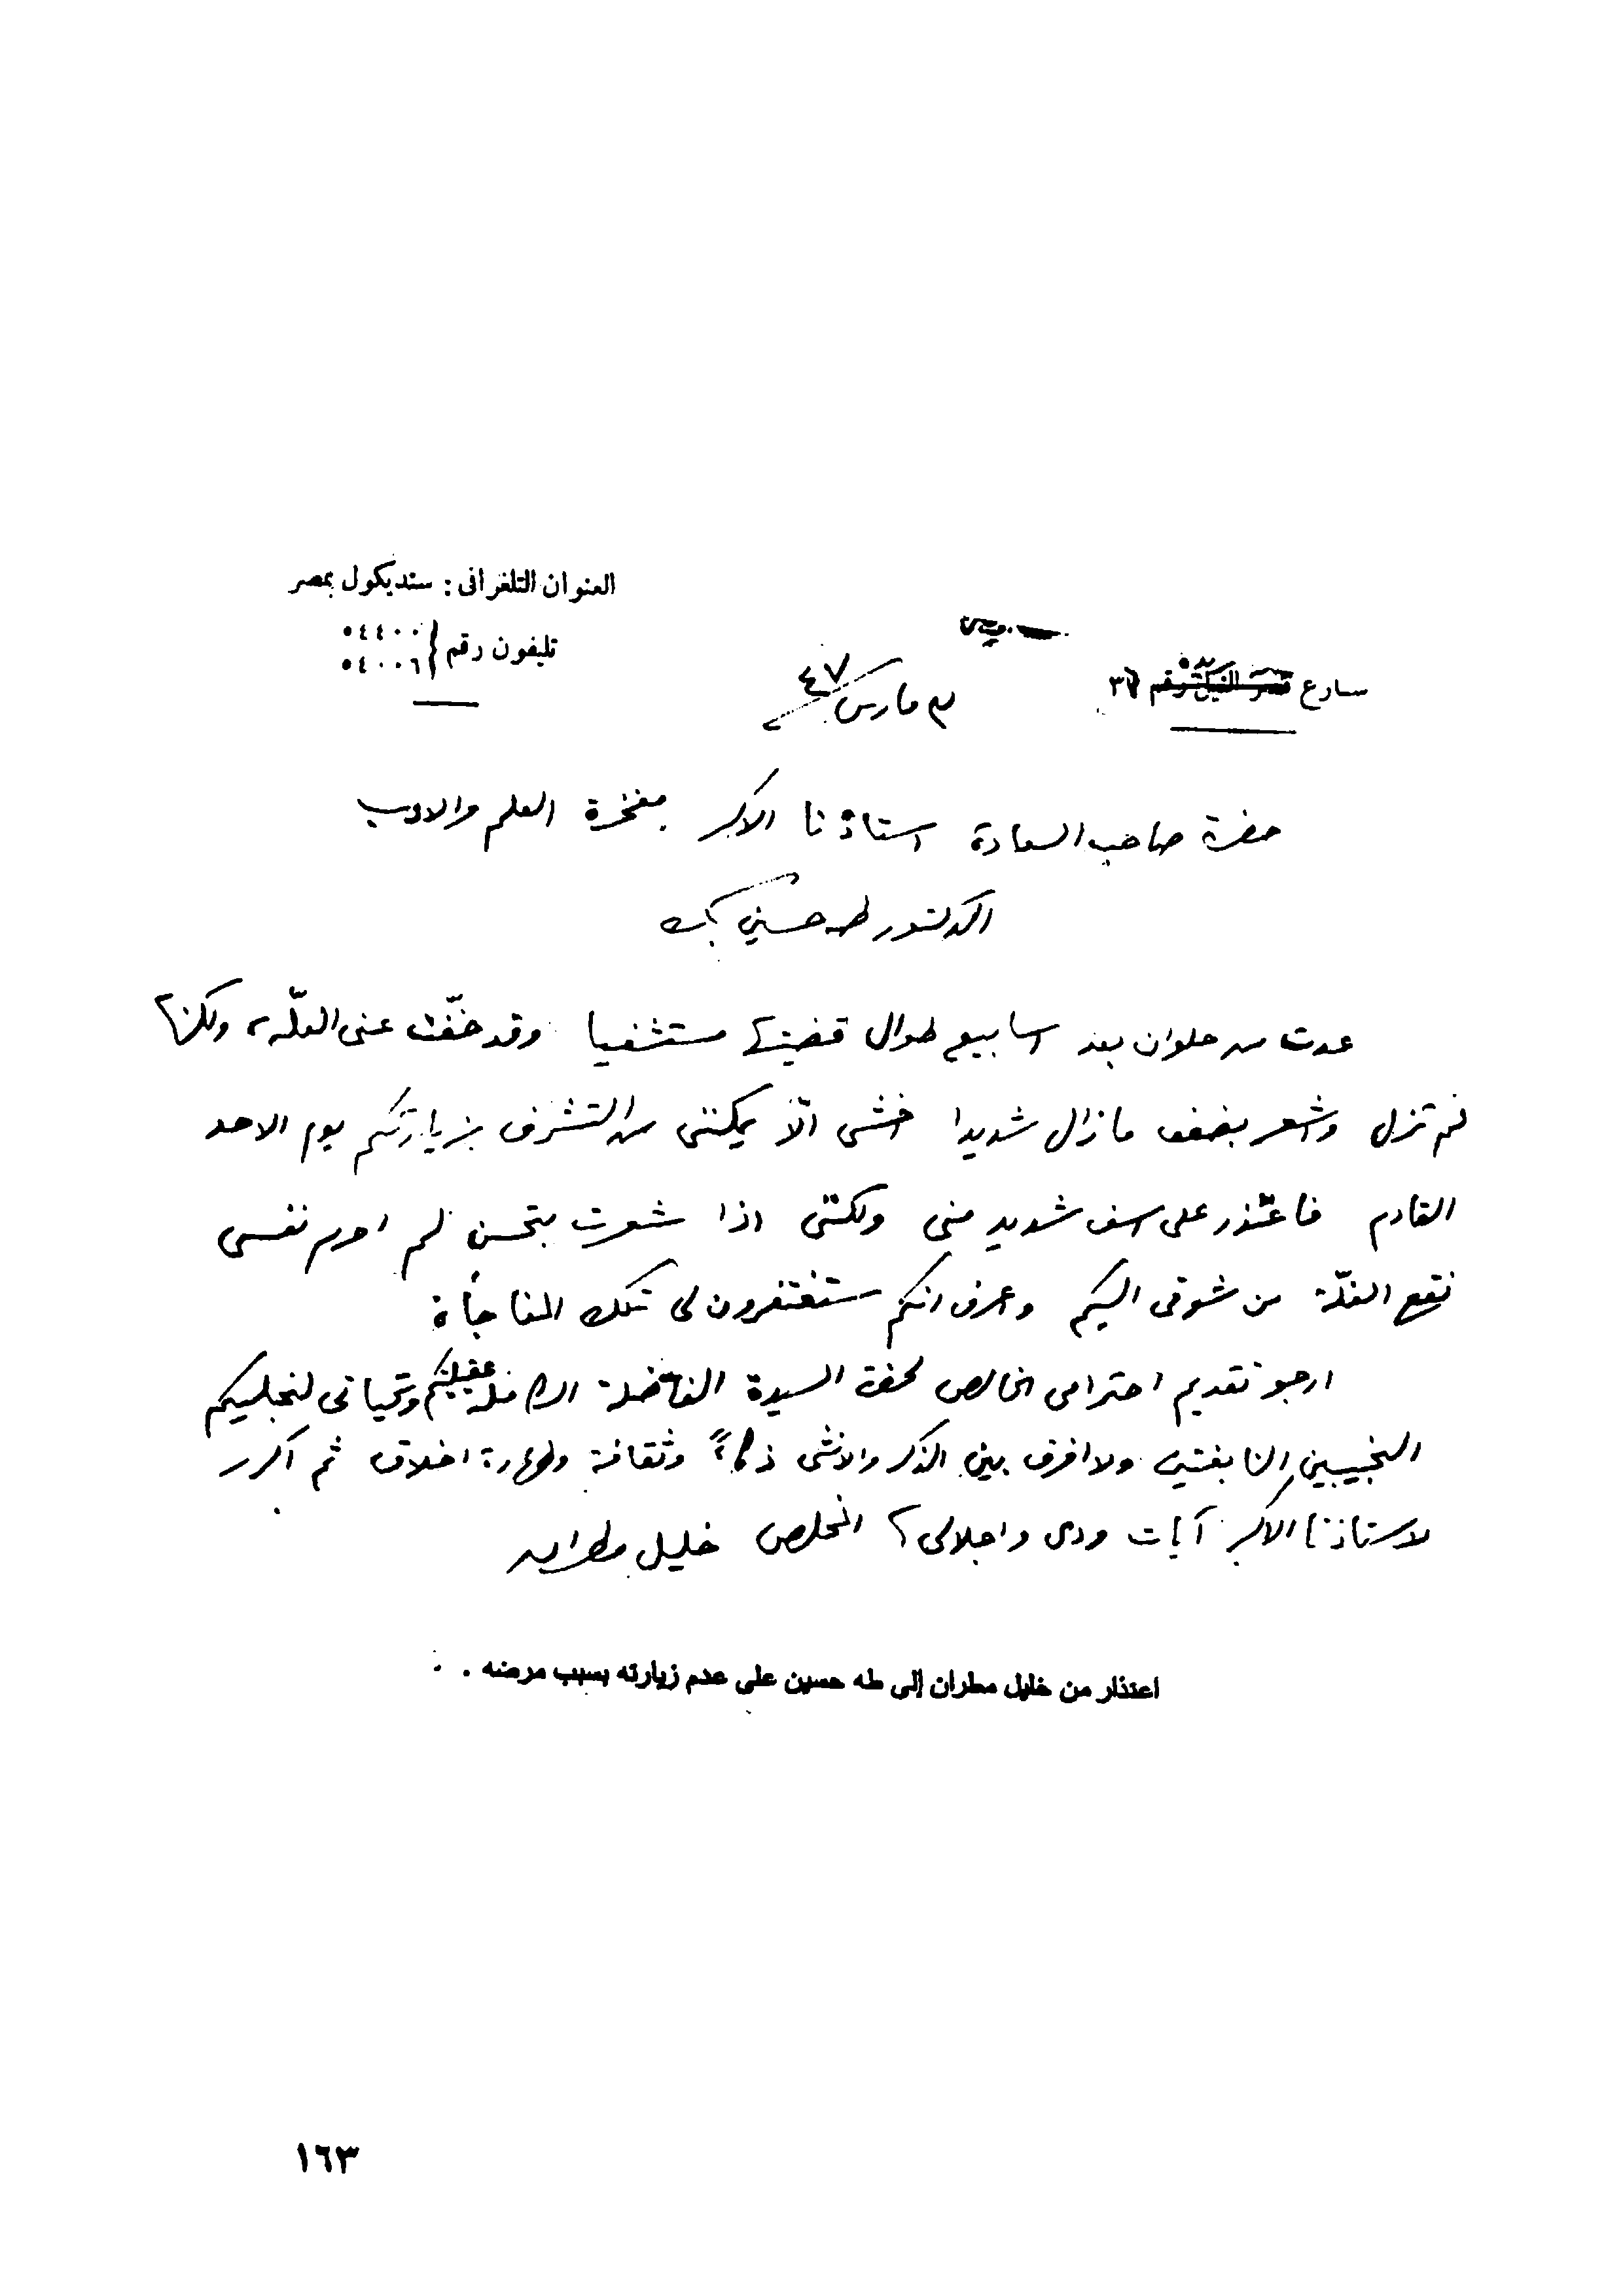 العنوان التلغرافى : سنديكول بمصر
تليفون رقم { ٥٤٤٠٠
٥٤٠٠٦
شارع قصر النيل رقم
مارس ٤٧
حضرة صاحب السعادة استاذنا الاكبر مفخرة العلم والادب
الدكتور طه حسين بك
عدت من حلوان بعد اسابيع طوال قضيتها مستشفيا وقد خفّت عنى العلّة، ولكنها
لم تزل واشعر بضعف مازال شديدا اخشى الّا يمكننى من التشرف بزيارتكم يوم الاحد
القادم فاعتذر على اسف شديد منى ولكننى اذا شعرت بتحسن لم احرم نفسى
نقع الغلّة من شوقى اليكم واعرف انكم ستغتفرون لى تلك المفاجأة
ارجو تقديم احترامى الخالص لحضرة السيدة الفاضلة الكاملة عقيلتكم وتحياتى لنجليكم
النجيبين النابغتين ولا افرق بين الذكر والانثى ذكاءً وثقافة وطهارة اخلاق ثم اكرر
لاستاذنا الاكبر آيات ودى واجلالى المخلص خليل مطران
اعتذار من خليل مطران إلى طه حسين على عدم زيارته بسبب مرضه .
١٦٣